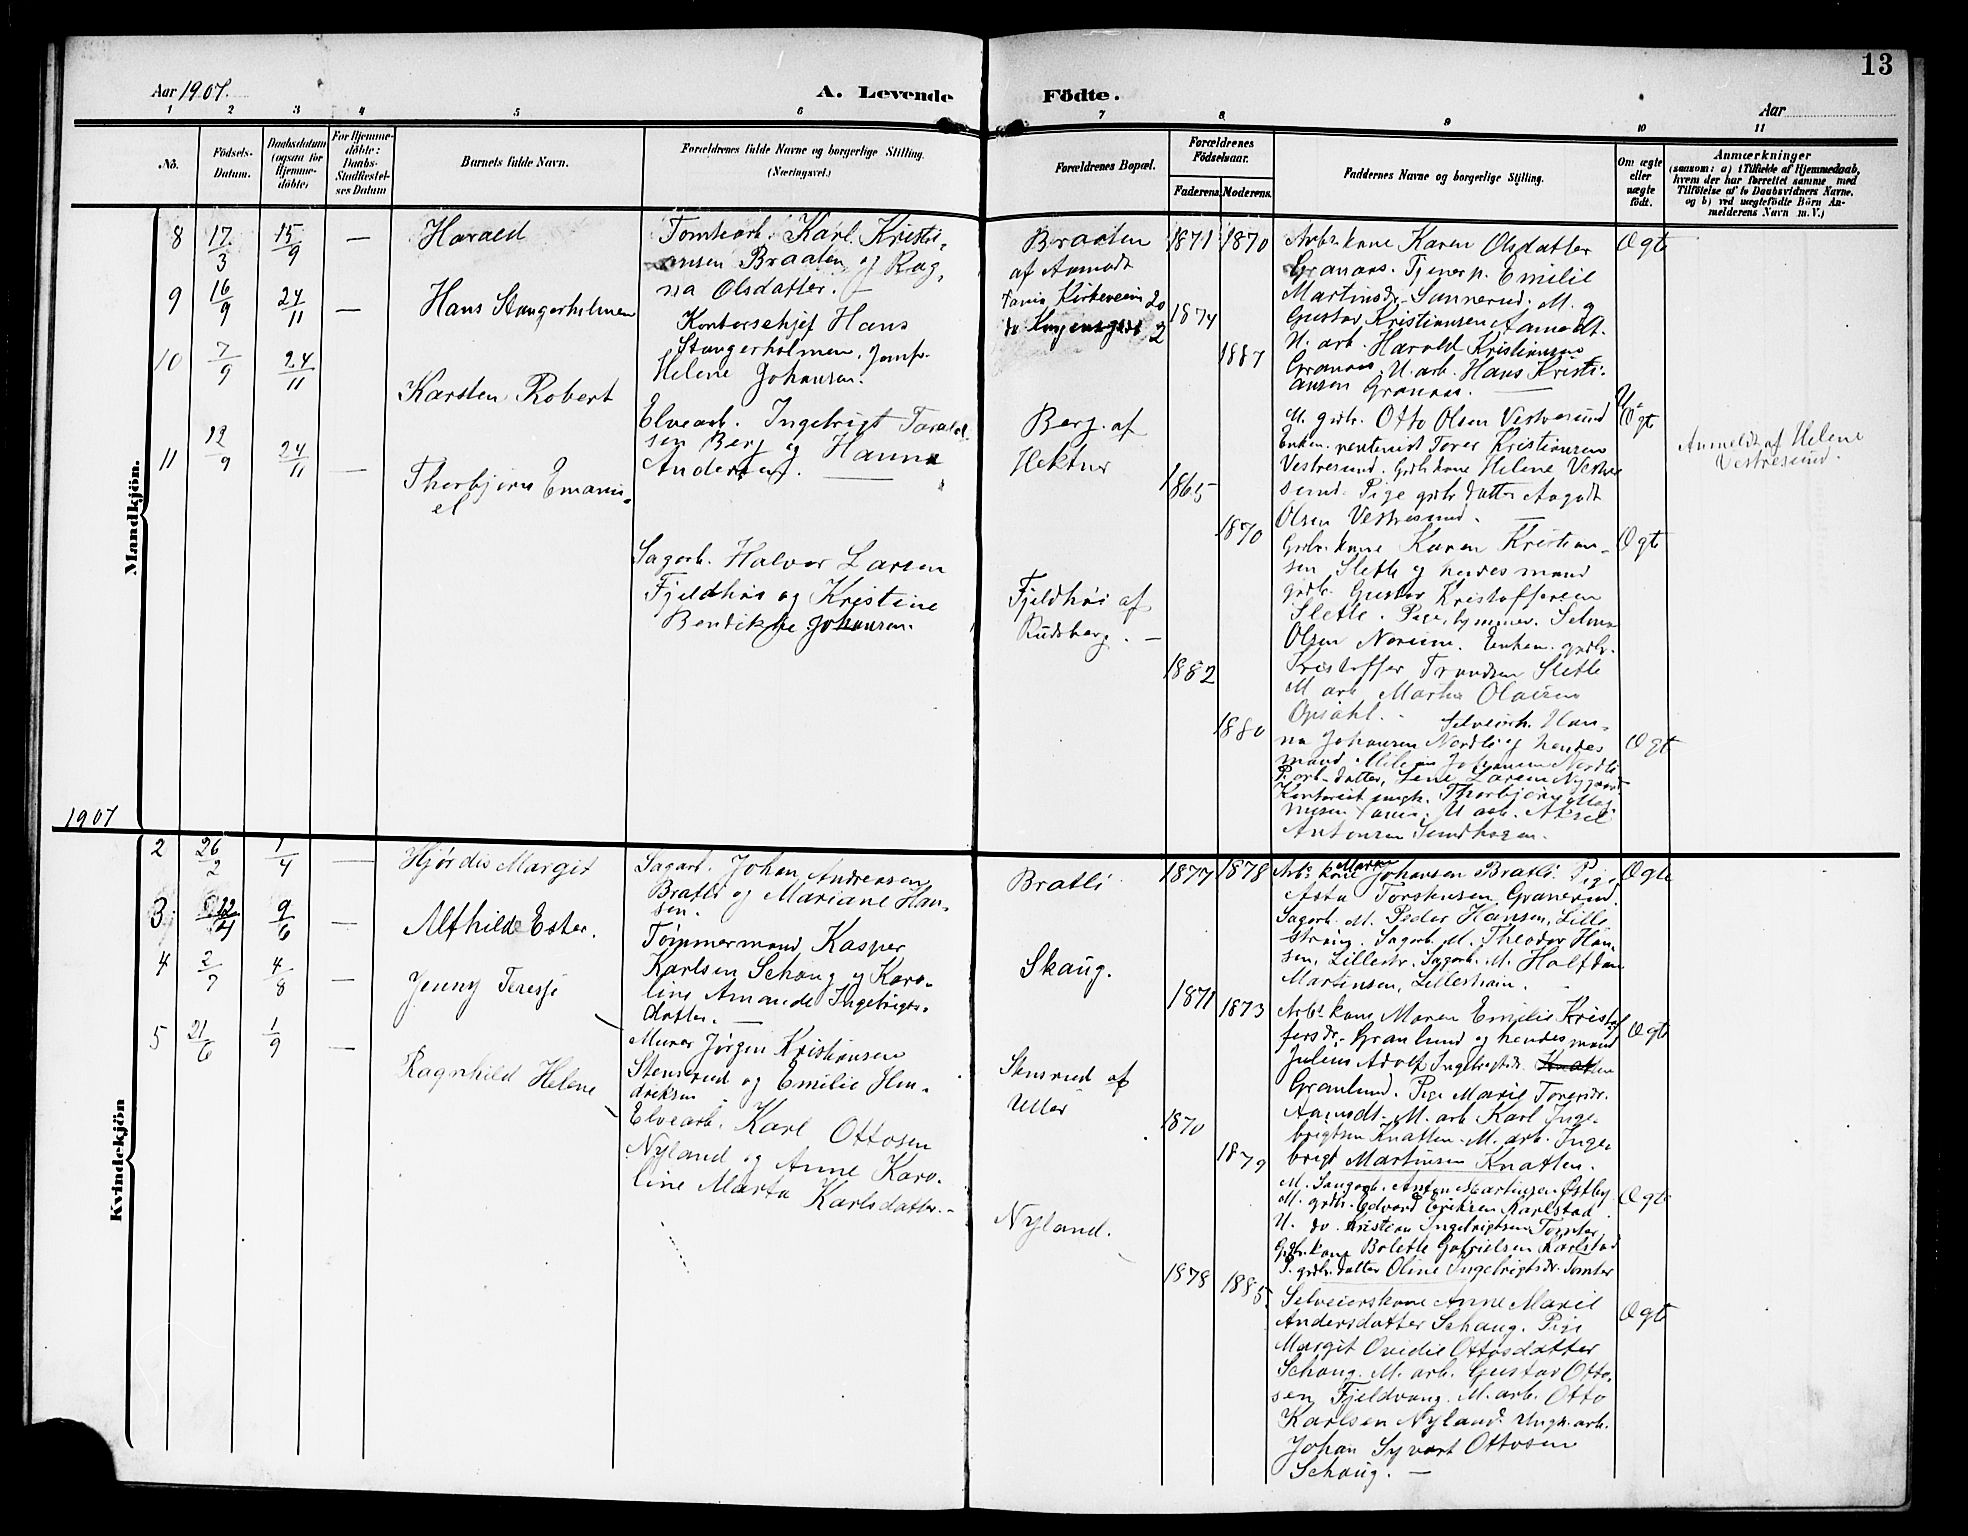 13
Aar 1907.
A. Levende Födte.
Aar
1 2 3 4 5 6 7 8 9 10 11
No.
Födsels-Datum.
Daabsdatum (ogsaa for Hjemme-döbte)
For Hjemme-döbte: Daabs-Stadfæstel-ses Datum
Barnets fulde Navn.
Forældrenes fulde Navne og borgerlige Stilling. (Næringsvei.)
Forældrenes Bopæl.
Forældrenes Födselsaar.
Faderens. Moderens.
Faddernes Navne og borgerlige Stilling.
Om ægte eller uægte födt.
Anmærkninger
(saasom: a) i Tilfælde af Hjemmedaab,
hvem der har forrettet samme med
Tilföielse af to Daabsvidners Navne.
og b) ved uægtefödte Börn An-
melderens Navn m. V.)
Mandkjön.
8 17/3 15/9 — Harald
Tomtearb. Karl Kristi-
ansen Braaten og Rag-
na Olsdatter. —
Braaten
af Aamodt
1871 1870
Arb.kone Karen Olsdatter
Granaas. Tjenerp. Emilie
Martinsdr. Sannerud. M. og
Gustav Kristiansen Aamodt.
U. arb. Harald Kristiansen
Granaas. U. arb. Hans Kristi-
ansen Granaas. —
Ægte
9 16/9 24/11 — Hans Stangerholmen
Kontorschef Hans
Stangerholmen. Jomfr.
Helene Johansen.
Kirkeveien 20
do Kongensgade 2
1874
1887
M. grdbr. Otto Olsen Vestresund
Enkem. rentenist Torer Kristiansen
Vestresund. Grdbr.kone Helene Vestre
sund. Pige grdbr.datter Aagodt
Olsen Vestresund. —
U.
Ægt
Anmeldt af Helene
Vestresund.
10 7/9 24/11
Karsten Robert
Elvearb. Ingebrigt Tarald-
sen Berg og Hanna
Andersen. —
Berg. af
Hektner
1865
1870
Grdbr.kone Karen Kristian-
sen Slette og hendes mand
grdbr. Gustav Kristoffersen
Slette. Pige, Selma
Olsen Noreim. Enkem. grdbr.
Kristoffer Trondsen Slette
M. arb. Martin Olausen
Opsahl. -
Ægte
11 12/9 24/11 —
Thorbjørn Emanu-
el
Sagarb. Halvor Larsen
Fjeldhøi og Kristine
Bendikke Johansen.
Fjeldhøi af
Rudsberg. —
1882
1880
Selveierk. Han-
na Johansen Nordli og hendes
mand Johansen Nordli
P. arb.datter, Lene Larsen Nygaard
Kontorist ungk. Thorbjørn Mag-
nusen. U. arb. Aksel
Antonsen Sundhagen.
Ægt
1907
Kvindekjön
2 26/2 1/4 — Hjørdis Margit
Sagarb. Johan Andreasen
Bratli og Mariane Han-
sen.
Bratli
1877 1878
Arb. kone Johansen Bratli. Pige
Asta Torstensen Granerud.
Sagarb. M. Peder Hansen, Lille
strøm. Sagarb. M. Theodor Han-
sen, Lillestr. Sagarb. M. Halfdan
Martinsen, Lillestrøm.
Ægte
3 22/4 9/6 — Alfhilde Ester.
Tømmermand Kasper
Karlsen Schaug og Karo-
line Amande Ingebrigts-
datter. —
Skaug.
1871 1873
Arb. kone Maren Emilie Kristof
fersdr. Granlund og hendes mand
Julius Adolf Ingebrigtsdr.
Granlund. Pige Marie Toresdr.
Aamodt. M. arb Karl Inge-
brigtsen Knatten. M. arb. Inge-
brigt Martinsen Knatten.
Ægte
4 2/7 4/8 — Jenny Teresje
Murer Jørgen Kristiansen
Stensrud og Emilie Hen-
driksen
Stensrud af
Uller
1870
1879
M. Sangarb. Anton Martinsen Østby
M. grdbr. Edvard Eriksen Karlstad
U. do. Kristian Ingebrigtsen Tomter
Grdbr.kone Bolette Gabrielsen Karlstad
P. grdbr.datter Oline Ingebrigtsdr. Tomter
Ægte
5 21/6 1/9 — Ragnhild Helene
Elvearb. Karl Ottosen
Nyland og Anne Karo-
line Marta Karlsdatter. -
Nyland.
1878 1885.
Selveierskone Anne Marie
Andersdatter Schaug. Pige
Margit Ovidie Ottosdatter
Schaug. M. arb. Gustav Otto-
sen Fjeldvang. M. arb. Otto
Karlsen Nyland. Ungk. arb.
Johan Syvert Ottosen
Schaug. —
Ægte